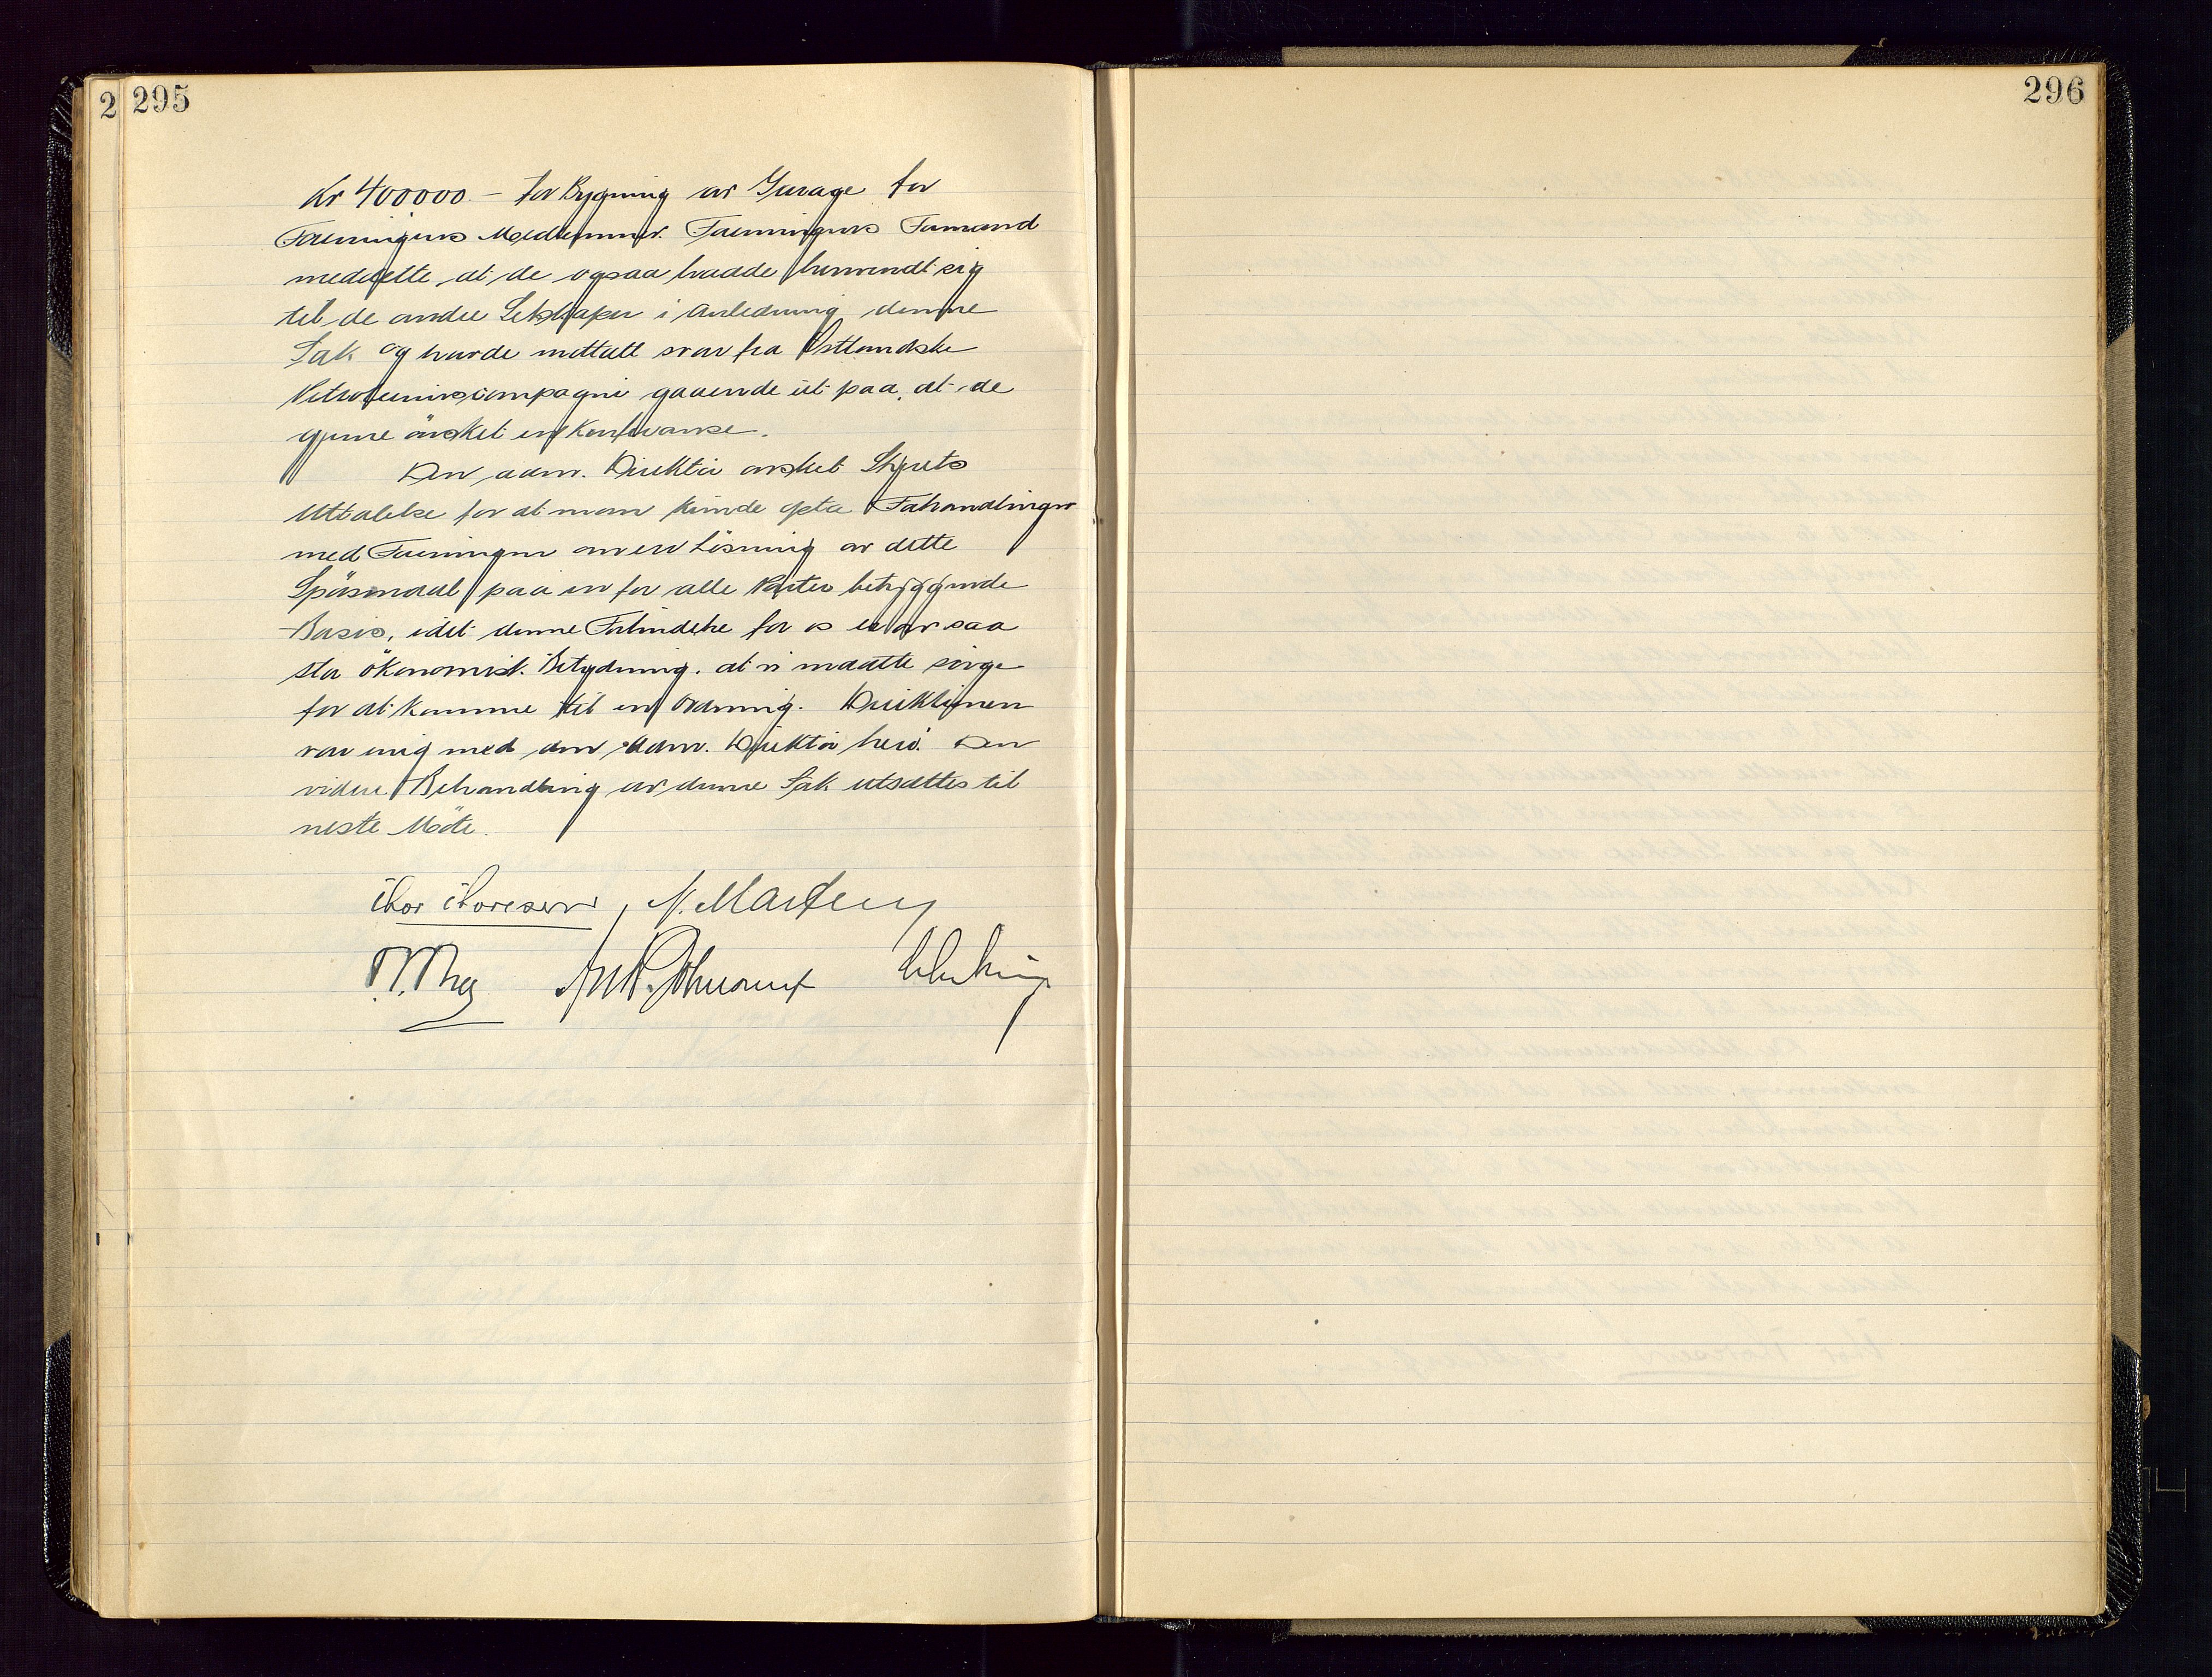 2 295
296
Kr 400000.- for Bygning av Garage for
Foreningens Medlemmer. Foreningens Formand
meddelte, at de ogsaa hadde henvendt sig
til de andre Selskaper i Anledning denne
Sak og havde mottatt svar fra Östlandske
Petroleumscompagni gaaende ut paa, at de
gjerne önsket en Konferanse.
Den adm. Direktör önsket Styrets
Uttalelse for at man kunde opta Forhandlinger
med Foreningen om en Lösning av dette
Spörsmaal paa en for alle Parter betryggende
Basis, idet denne Forbindelse for os er av saa
stor ökonomisk Betydning, at vi maatte sörge
for at komme til en Ordning. Direktionen
var enig med den adm. Direktör heri. Den
videre Behandling av denne Sak utsættes til
neste Möte.
Thor Thoresen, N. Martens